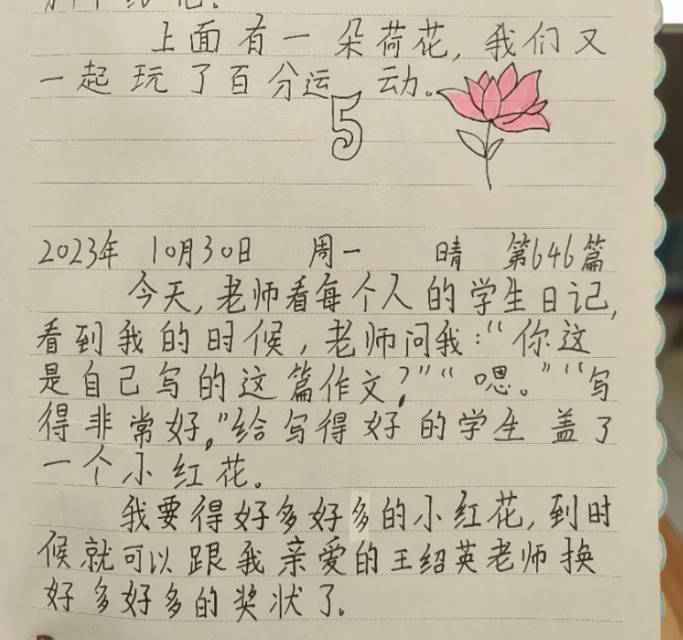 上面有一朵荷花,我们又
一起玩了百分运动。
5
2023年 10月30日 周一 晴 第646篇
今天,老师看每个人的学生日记,
看到我的时候,老师问我:“你这
是自己写的这篇作文?”“嗯。”“写
得非常好。”给写得好的学生盖了
一个小红花。
我要得好多好多的小红花,到时
候就可以跟我亲爱的王绍英老师换
好多好多的奖状了。